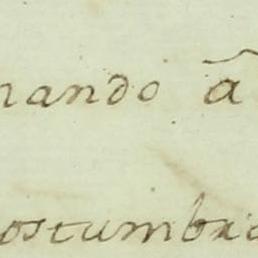 nando â
ostumbra